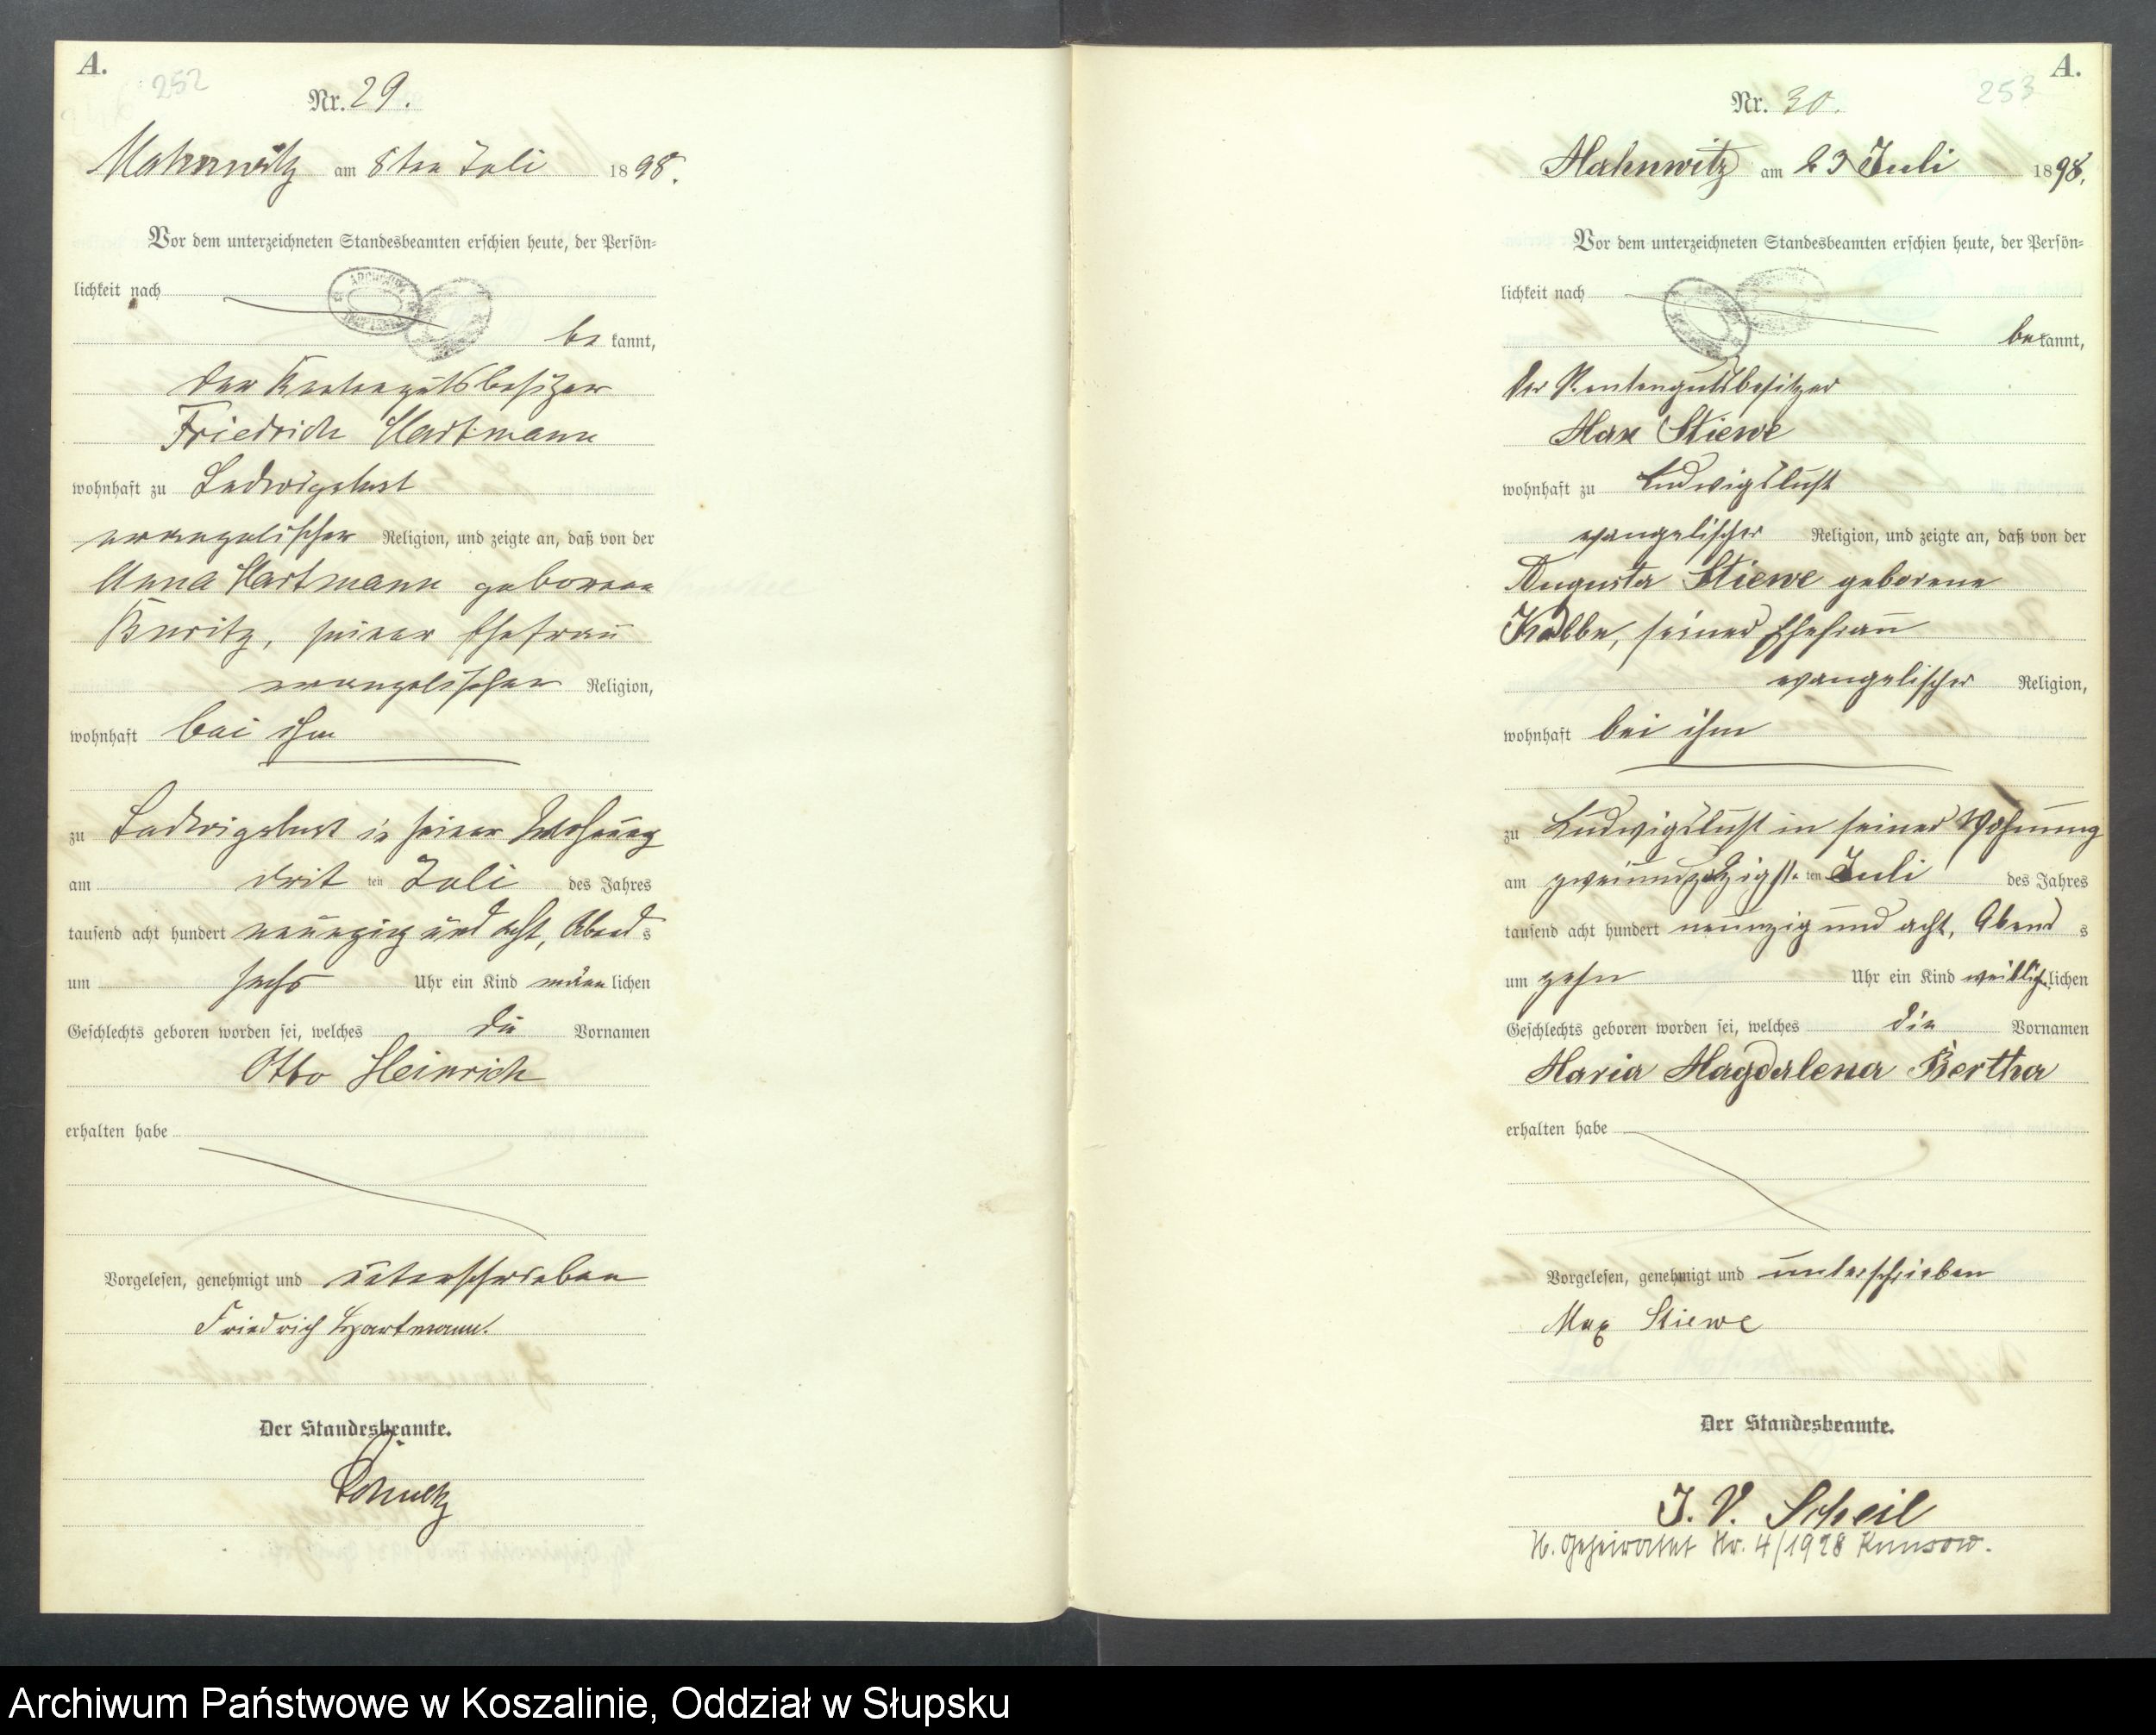 A.
252
Nr. 29.
Mahnwitz am 8ten Juli 1898.
Vor dem unterzeichneten Standesbeamten erschien heute, der Persön-
lichkeit nach
bekannt,
der Rentengutsbesitzer
Friedrich Hartmann
wohnhaft zu Ludwigslust
evangelischer Religion, und zeigte an, daß von der
Anna Hartmann geborene
seiner Ehefrau
evangelischer Religion,
wohnhaft bei ihm
zu Ludwigslust in seiner Wohnung
am dritten Juli des Jahres
tausend acht hundert neunzig und acht, Abends
um sechs Uhr ein Kind männlichen
Geschlechts geboren worden sei, welches die Vornamen
Otto Heinrich
erhalten habe
Vorgelesen, genehmigt und unterschrieben
Friedrich Hartmann.
Der Standesbeamte.
A.
253
Nr. 30.
Mahnwitz am 23 Juli 1898.
Vor dem unterzeichneten Standesbeamten erschien heute, der Persön-
lichkeit nach
bekannt,
der Rentengutsbesitzer
Max Stiewe
wohnhaft zu Ludwigslust
evangelischer Religion, und zeigte an, daß von der
Augusta Stiewe geborene
seiner Ehefrau
evangelischer Religion,
wohnhaft bei ihm
zu Ludwigslust in seiner Wohnung
am ten Juli des Jahres
tausend acht hundert neunzig und acht, Abends
um zehn Uhr ein Kind weiblichlichen
Geschlechts geboren worden sei, welches die Vornamen
Maria Magdalena Bertha
erhalten habe
Vorgelesen, genehmigt und unterschrieben
Max Stiewe
Der Standesbeamte.
J. V. Scheil
H. Geheiratet Nr. 4/1928 Kunsow.
Archiwum Państwowe w Koszalinie, Oddział w Słupsku